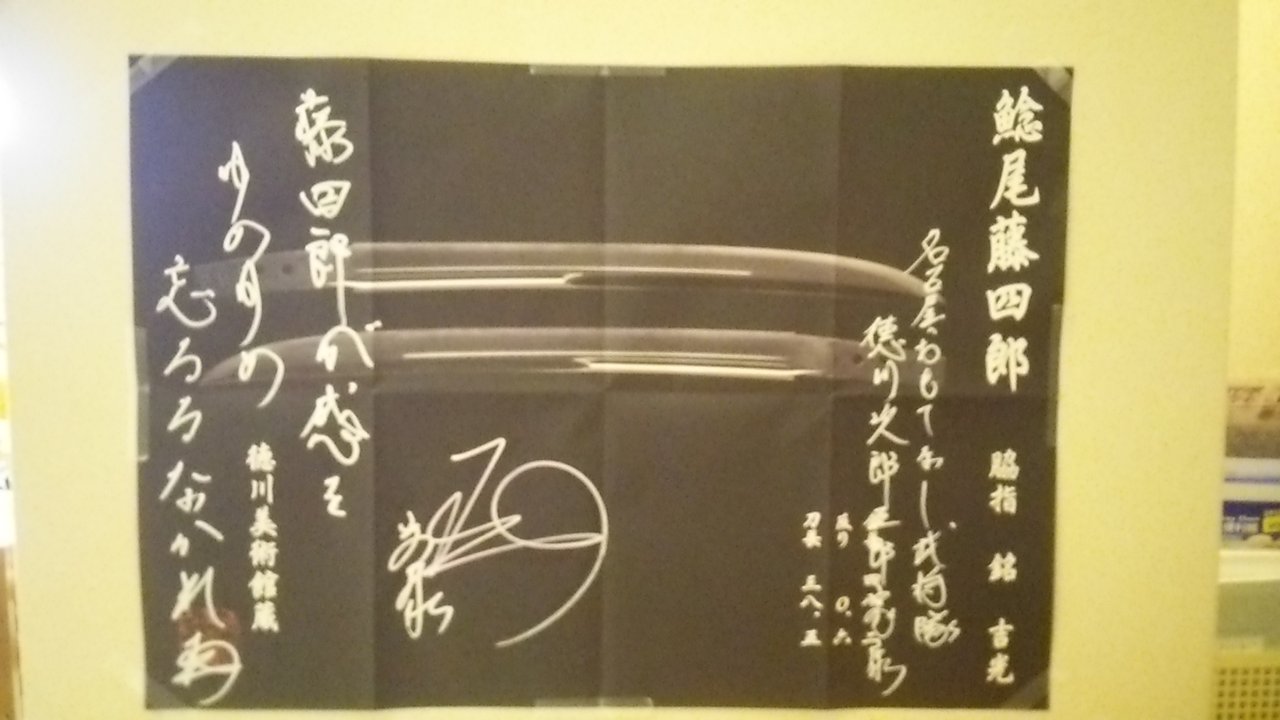 鯰尾藤四郎 脇指 銘 吉光
名古屋おもてなし武将隊
徳川次郎三郎
反り 〇.六
刃長 三八.五
家康
藤四郎が
徳川美術館蔵
ゆめゆめ
忘るるなかれ